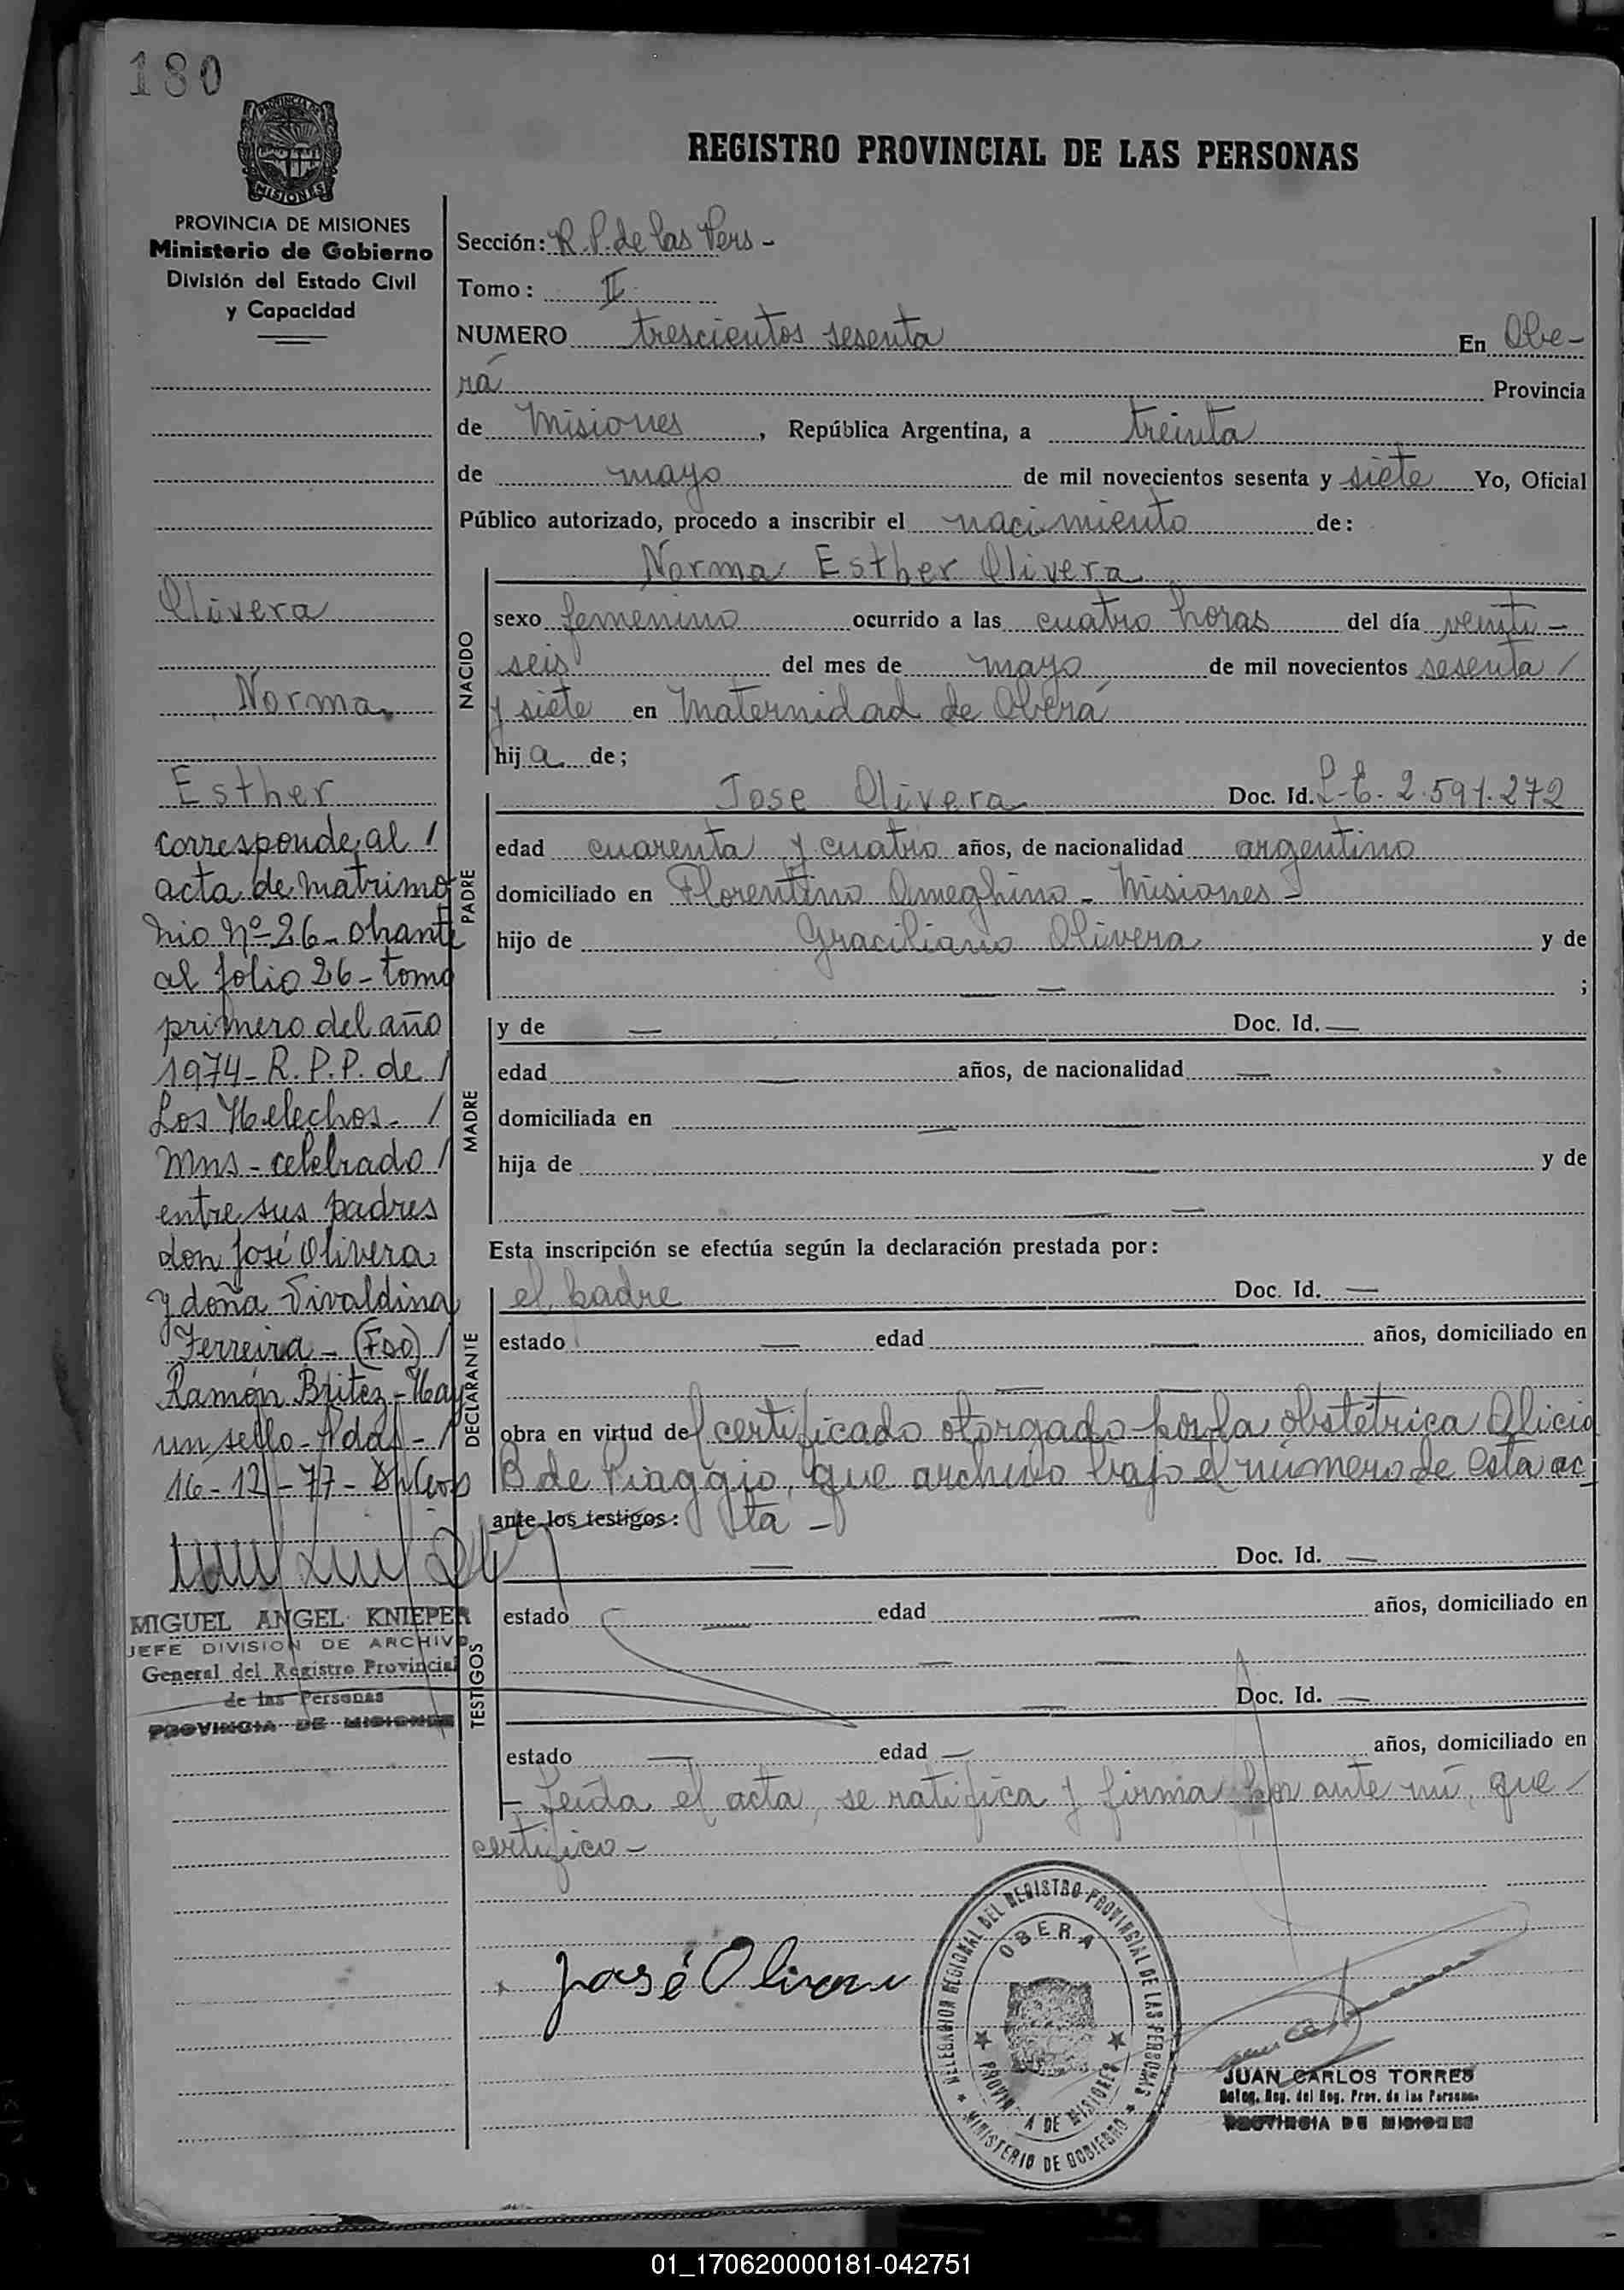 180
PROVINCIA DE
MISIONES
PROVINCIA DE MISIONES
Ministerio de Gobierno
División del Estado Civil
y Capacidad
Olivera
Norma
Esther
corresponde al /
acta de matrimo
nio Nº 26 - obrante
al folio 26 - tomo
primero del año
1974 - R. P. P. de /
Los Helechos - /
Mns - celebrado /
entre sus padres
don José Olivera
y doña Vivaldina
Ferreira - (Fdo) /
Ramón Britez - Hay
un sello - Pdas - /
16 - 12 - 77 -
MIGUEL ANGEL KNIEPER
JEFE DIVISION DE ARCHIVO
General del Registro Provincial
de las Personas
PROVINCIA DE MISIONES
REGISTRO PROVINCIAL DE LAS PERSONAS
Sección: R. P. de las Pers -
Tomo: II
NUMERO trescientos sesenta En Obe-
rá Provincia
de Misiones, República Argentina, a treinta
de mayo de mil novecientos sesenta y siete Yo, Oficial
Público autorizado, procedo a inscribir el nacimiento de:
Norma Esther Olivera
NACIDO
sexo femenino ocurrido a las cuatro horas del día veinti-
seis del mes de mayo de mil novecientos sesenta /
y siete en Maternidad de Oberá
hija de;
PADRE
Jose Olivera Doc. Id. L-E. 2.591.272
edad cuarenta y cuatro años, de nacionalidad argentino
domiciliado en Florentino Ameghino - Misiones -
hijo de Graciliano Olivera y de
— — ;
MADRE
y de — Doc. Id. —
edad — años, de nacionalidad —
domiciliada en — —
hija de — — y de
— —
Esta inscripción se efectúa según la declaración prestada por:
DECLARANTE
el padre Doc. Id. —
estado — edad — años, domiciliado en
— —
obra en virtud del certificado otorgado por la obstétrica Alicia
B de Piaggio, que archivo bajo el número de esta ac
ante los testigos: ta -
TESTIGOS
— Doc. Id. —
estado — edad — años, domiciliado en
— —
— Doc. Id. —
estado — edad — años, domiciliado en
- Leída el acta, se ratifica y firma por ante mí, que -
certifico -
José Olivera
DELEGACION REGIONAL DEL REGISTRO PROVINCIAL DE LAS PERSONAS
OBERA
PROVINCIA DE MISIONES
MINISTERIO DE GOBIERNO
JUAN CARLOS TORRES
Deleg. Reg. del Reg. Prov. de las Personas
PROVINCIA DE MISIONES
01_170620000181-042751